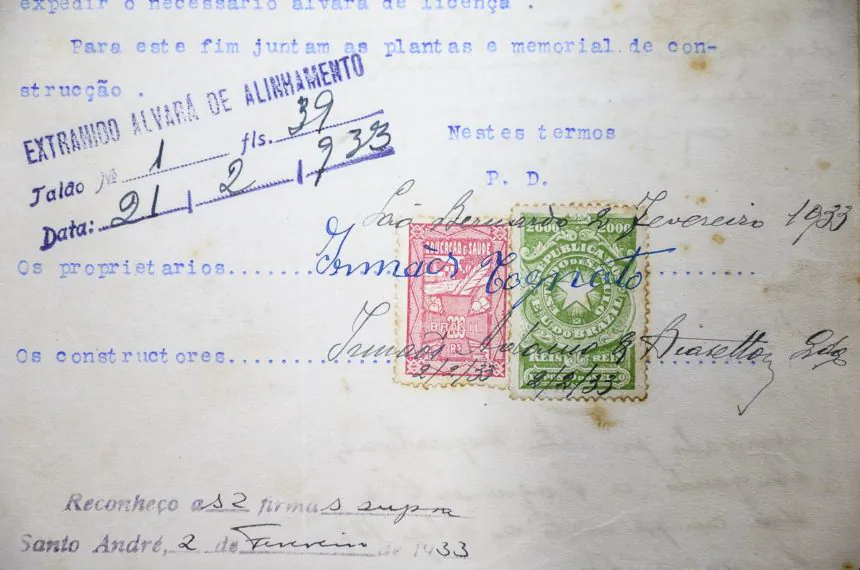 expedir o necessario alvará de licença .
Para este fim juntam as plantas e memorial de con-
strucção .
EXTRAHIDO ALVARÁ DE ALINHAMENTO
Talão Nº 1 fls. 39
Data: 21 / 2 / 933
Nestes termos
P. D.
São Bernardo 2 Fevereiro 1933
EDUCAÇÃO E SAUDE
BRASIL
200
RS
2000 2000
REPUBLICA
DO BRAZIL
REIS REIS
Os proprietarios....... Irmãos Tognato .........
Os constructores....... Irmãos & Ltda
2/2/33
2/2/33
Reconheço as 2 firmas supra
Santo André, 2 de Fevereiro de 1933